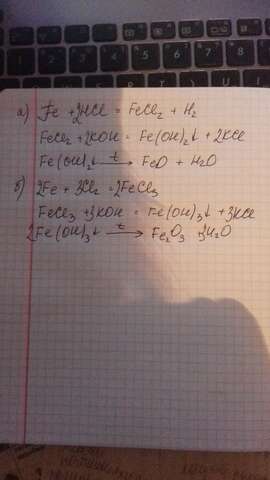 а) Fe + 2HCl = FeCl₂ + H₂
FeCl₂ + 2KOH = Fe(OH)₂↓ + 2KCl
Fe(OH)₂↓ —t→ FeO + H₂O
б) 2Fe + 3Cl₂ = 2FeCl₃
FeCl₃ + 3KOH = Fe(OH)₃↓ + 3KCl
2Fe(OH)₃↓ —t→ Fe₂O₃ 3H₂O